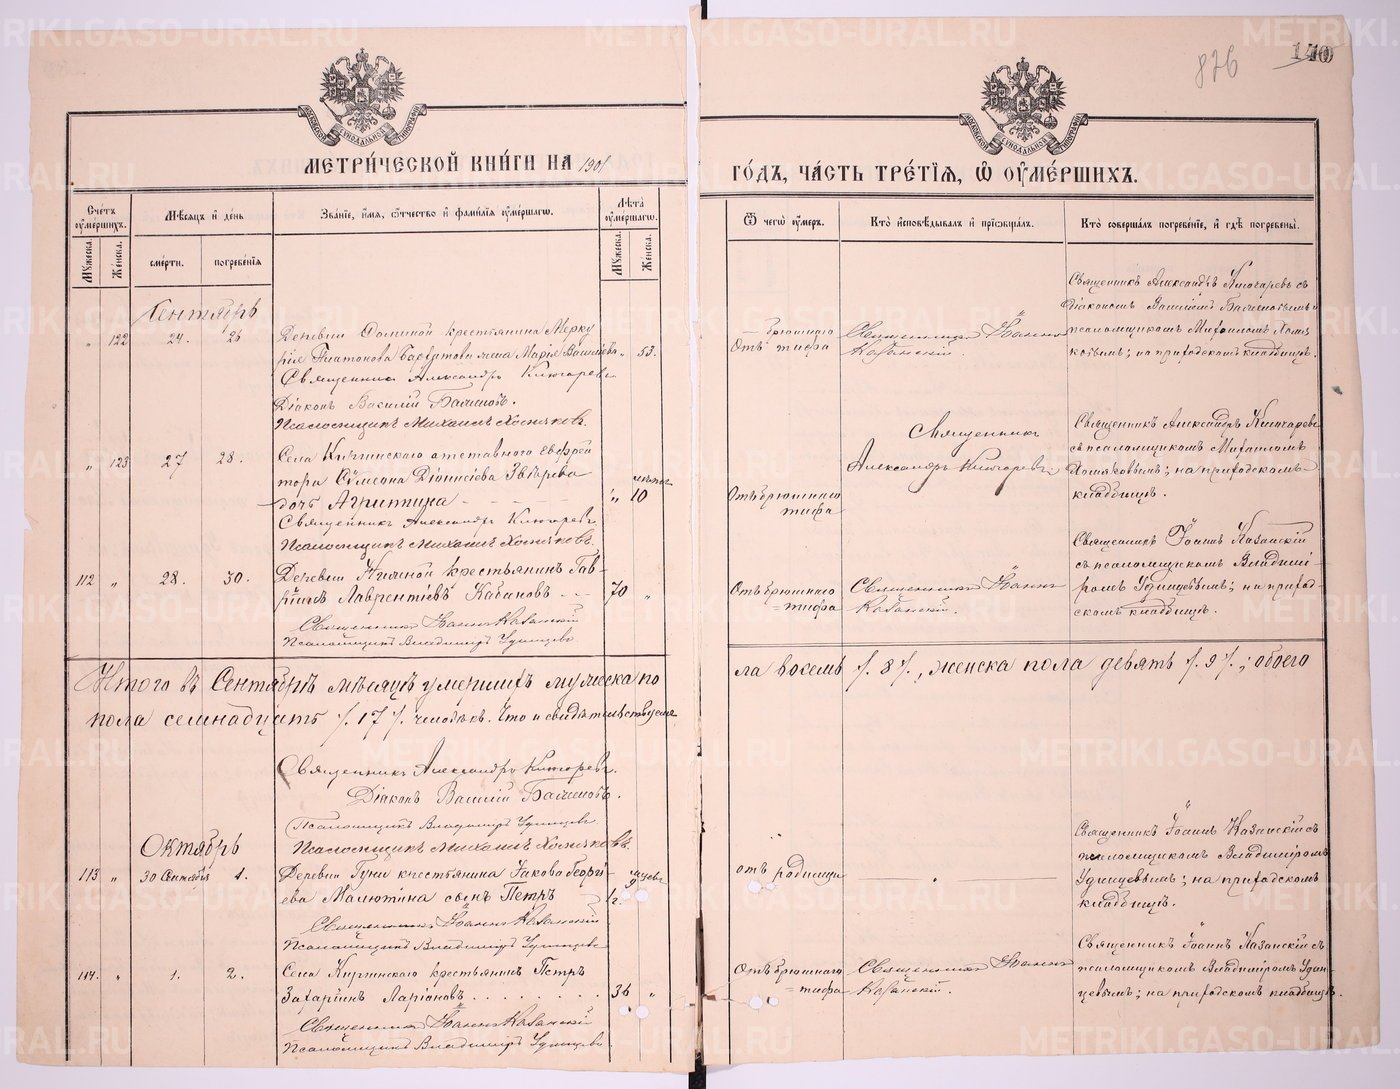 826
140
МЕТРИ́ЧЕСКОЙ КНИ́ГИ НА 1901
ГО́ДЪ, ЧА́СТЬ ТРЕ́ТІѦ, Ѿ ОУ҆МЕ́РШИХЪ.
Сче́тъ оу҆ме́ршихъ.
Мꙋ́жеска.
Же́нска.
Мѣ́сѧцъ и҆ де́нь
сме́рти.
погребе́нїѧ
Зва́нїе, и҆́мѧ, ѻ҆́тчество и҆ фами́лїѧ оу҆ме́ршагѡ.
Лѣ́та оу҆ме́ршагѡ.
Мꙋ́жеска.
Же́нска.
Ѿ чегѡ̀ оу҆́меръ.
Кто̀ и҆сповѣ́дывалъ и҆ прїѡбща́лъ.
Кто̀ соверша́лъ погребе́нїе, и҆ гдѣ̀ погребены̀.
Сентябрь
" 122 24. 26
Деревни крестьянина Мерку
рія Платонова жена Марія " 53.
Священникъ Александръ Ключаревъ
Діаконъ Василій
Псаломщикъ Михаилъ Хомяковъ.
брюшнаго
Отъ тифа
Священникъ Іоаннъ
Казанскій.
Священникъ Александръ Ключаревъ съ
діакономъ Василіемъ и
псаломщикомъ Михаиломъ Хомя
ковымъ; на приходскомъ кладбищѣ.
" 123 27 28.
Села Киргинскаго отставного ефрей
тора Сѵмеона Діонисіева Звѣрева
дочь Агриппина " 10
Священникъ Александръ Ключаревъ
Псаломщикъ Михаилъ Хомяковъ.
Отъ брюшнаго
тифа
Священникъ
Александръ Ключаревъ
Священникъ Александръ Ключаревъ
съ псаломщикомъ Михаиломъ
Хомяковымъ; на приходскомъ
кладбищѣ.
112 " 28. 30.
Деревни крестьянинъ Гав
ріилъ Лаврентіевъ Кабановъ 70 "
Священникъ Іоаннъ Казанскій
Псаломщикъ Владиміръ Удинцевъ
Отъ брюшнаго
тифа
Священникъ Іоаннъ
Казанскій.
Священникъ Іоаннъ Казанскій
съ псаломщикомъ Владимі-
ромъ Удинцевымъ; на приход-
скомъ кладбищѣ.
Итого въ Сентябрѣ мѣсяцѣ умершихъ мужеска по
ла восемь /. 8 /., женска пола девять /. 9 /.; обоего
пола семнадцать /. 17 /. человѣкъ. Что и свидѣтельствуемъ
Священникъ Александръ Ключаревъ.
Діаконъ Василій
Псаломщикъ Владиміръ Удинцевъ.
Псаломщикъ Михаилъ Хомяковъ
Октябрь
113 " 30 Сентября 1.
Деревни Гуни крестьянина Іакова Георгі-
ева Малютина сынъ Петръ
Священникъ Іоаннъ Казанскій
Псаломщикъ Владиміръ Удинцевъ
отъ родимца
Священникъ Іоаннъ Казанскій съ
псаломщикомъ Владиміромъ
Удинцевымъ; на приходскомъ
кладбищѣ.
114. " 1. 2.
Села Киргинскаго крестьянинъ Петръ
Захаріинъ Ларіоновъ 36 "
Священникъ Іоаннъ Казанскій
Псаломщикъ Владиміръ Удинцевъ
Отъ брюшнаго
тифа
Священникъ Іоаннъ
Казанскій.
Священникъ Іоаннъ Казанскій съ
псаломщикомъ Владиміромъ Удин-
цевымъ; на приходскомъ кладбищѣ.
METRIKI.GASO-URAL.RU